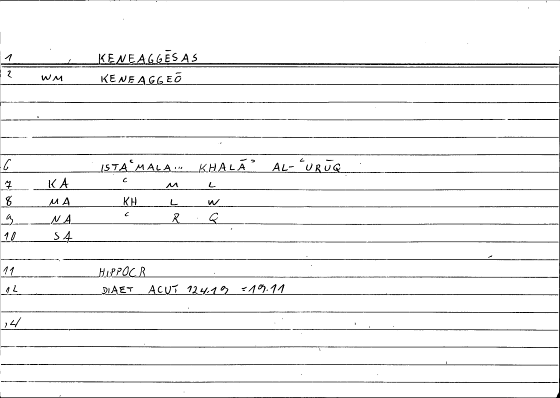 1 KENEAGGĒSAS
2 WM KENEAGGEŌ
6 ISTAʿMALA... KHALĀʾ AL-ʿURŪQ
7 KA ʿ M L
8 MA KH L W
9 NA ʿ R Q
10 SA
11 HIPPOCR
12 DIAET ACUT 124.19 =19.11
14